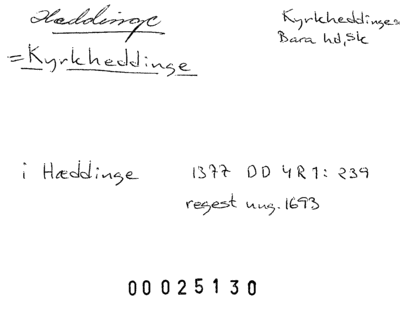 Hæddinge
Kyrkheddinges
Bara hd, Sk
= Kyrkheddinge
i Hæddinge 1377 DD 4R1: 239
regest ung. 1693
00025130